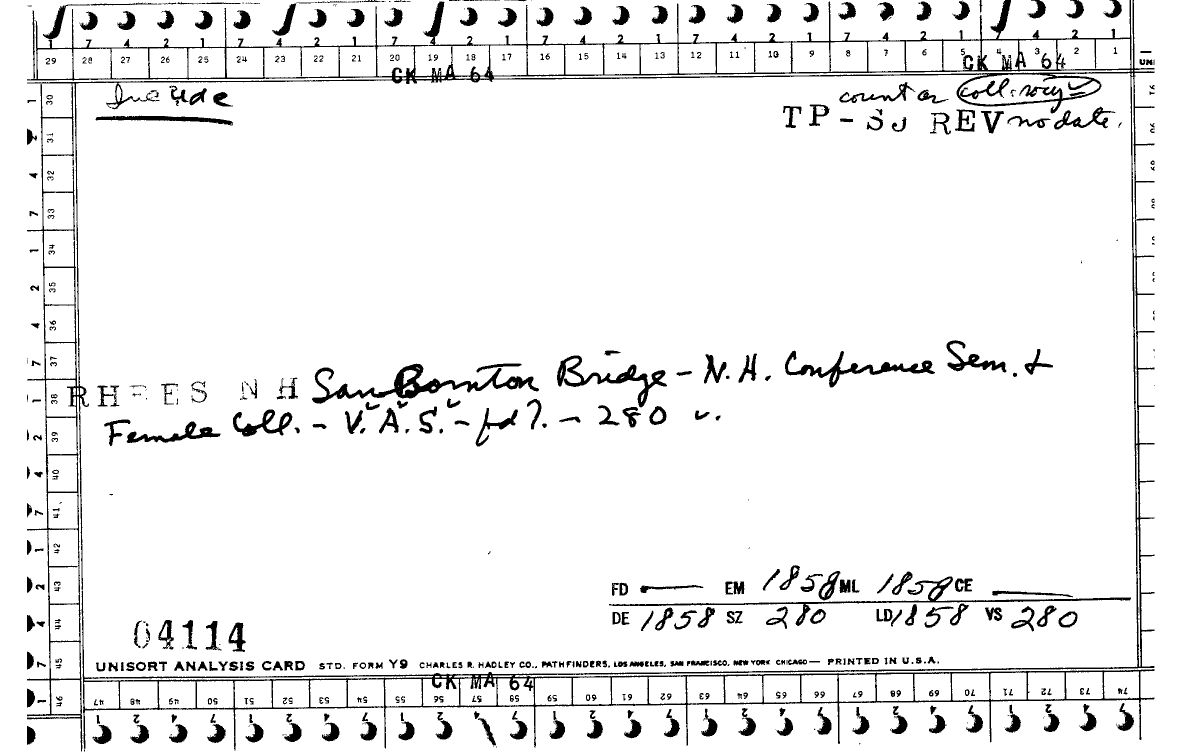 7 4 2 1 7 4 2 1 7 4 2 1 7 4 2 1 7 4 2 1 7 4 2 1 7 4 2 1
29 28 27 26 25 24 23 22 21 20 19 18 17 16 15 14 13 12 11 10 9 8 7 6 5 4 3 2 1
CK MA 64 CK MA 64
Include
count as coll. socy
TP-SJ REV no date.
30 31 32 33 34 35 36 37 38 39 40 41 42 43 44 45 46
RHEES NH SanBornton Bridge - N.H. Conference Sem. &
Female Coll. - V.A.S. - fd?. - 280 v.
FD — EM 1858 ML 1858 CE
DE 1858 SZ 280 LD 1858 VS 280
04114
UNISORT ANALYSIS CARD STD. FORM Y9 CHARLES R. HADLEY CO., PATHFINDERS, LOS ANGELES, SAN FRANCISCO, NEW YORK CHICAGO — PRINTED IN U.S.A.
CK MA 64
47 48 49 50 51 52 53 54 55 56 57 58 59 60 61 62 63 64 65 66 67 68 69 70 71 72 73 74